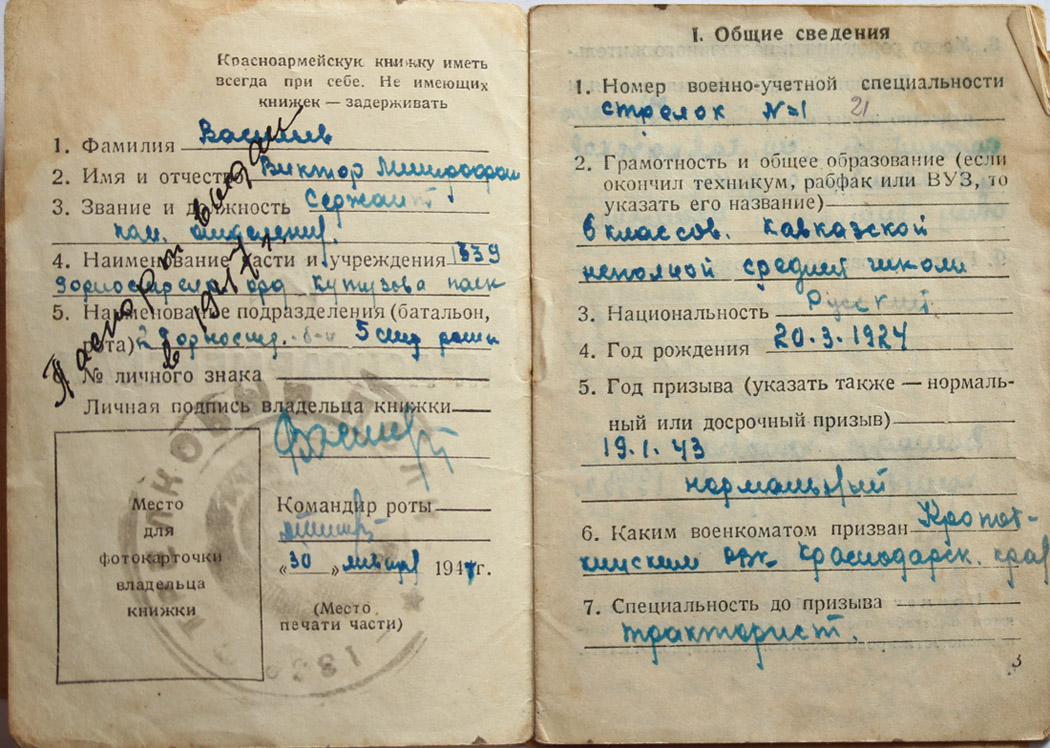 Красноармейскую книжку иметь
всегда при себе. Не имеющих
книжек — задерживать
1. Фамилия Василев
2. Имя и отчество Виктор
3. Звание и должность Сержант
ком. отделения.
4. Наименование части и учреждения 1339
горнострелк. орд Кутузова полк
5. Наименование подразделения (батальон,
рота) 2 горностр. б-н 5 стр рота
№ личного знака
Личная подпись владельца книжки
Место
для
фотокарточки
владельца
книжки
Командир роты
„30 " января 1947г.
(Место
печати части)
Паспорт выдан
в 1947 г.
1339
I. Общие сведения
1. Номер военно-учетной специальности
стрелок №1 21
2. Грамотность и общее образование (если
окончил техникум, рабфак или ВУЗ, то
указать его название)
6 классов. Кавказской
неполной средней школы
3. Национальность Русский
4. Год рождения 20.3.1924
5. Год призыва (указать также — нормаль-
ный или досрочный призыв)
19.1.43
нормальный
6. Каким военкоматом призван Кропот-
кинским РВК Краснодарск. края
7. Специальность до призыва
тракторист.
3